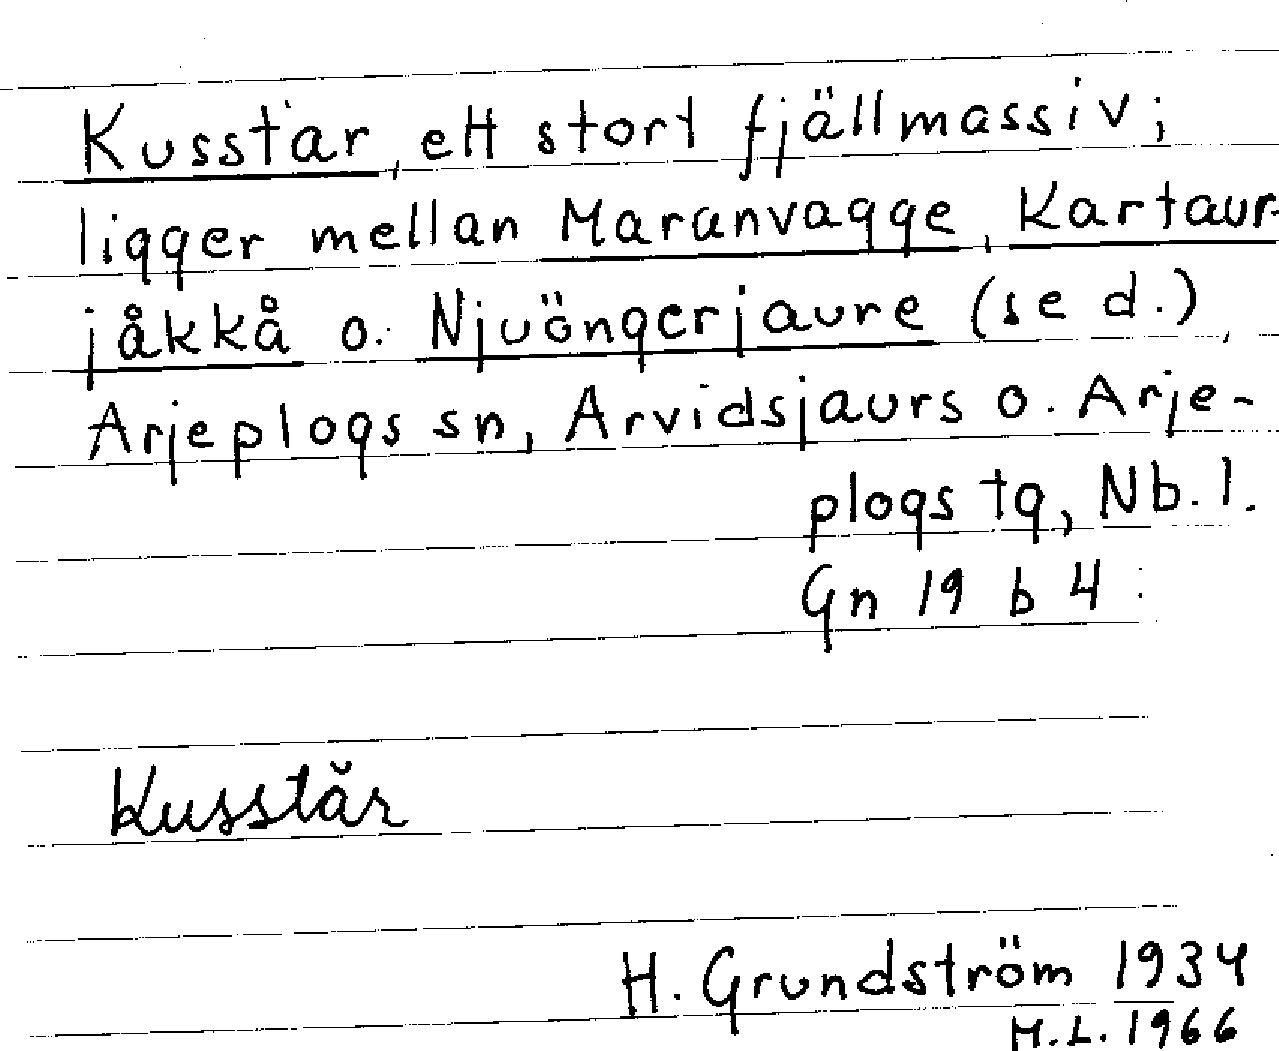 Kusstar, ett stort fjällmassiv;
ligger mellan Maranvagge, Kartaur-
jåkkå o. Njuöngerjaure (se d.),
Arjeplogs sn, Arvidsjaurs o. Arje-
plogs tg, Nb. l.
Gn 19 b 4
Kusstăr
H. Grundström 1934
H.L. 1966